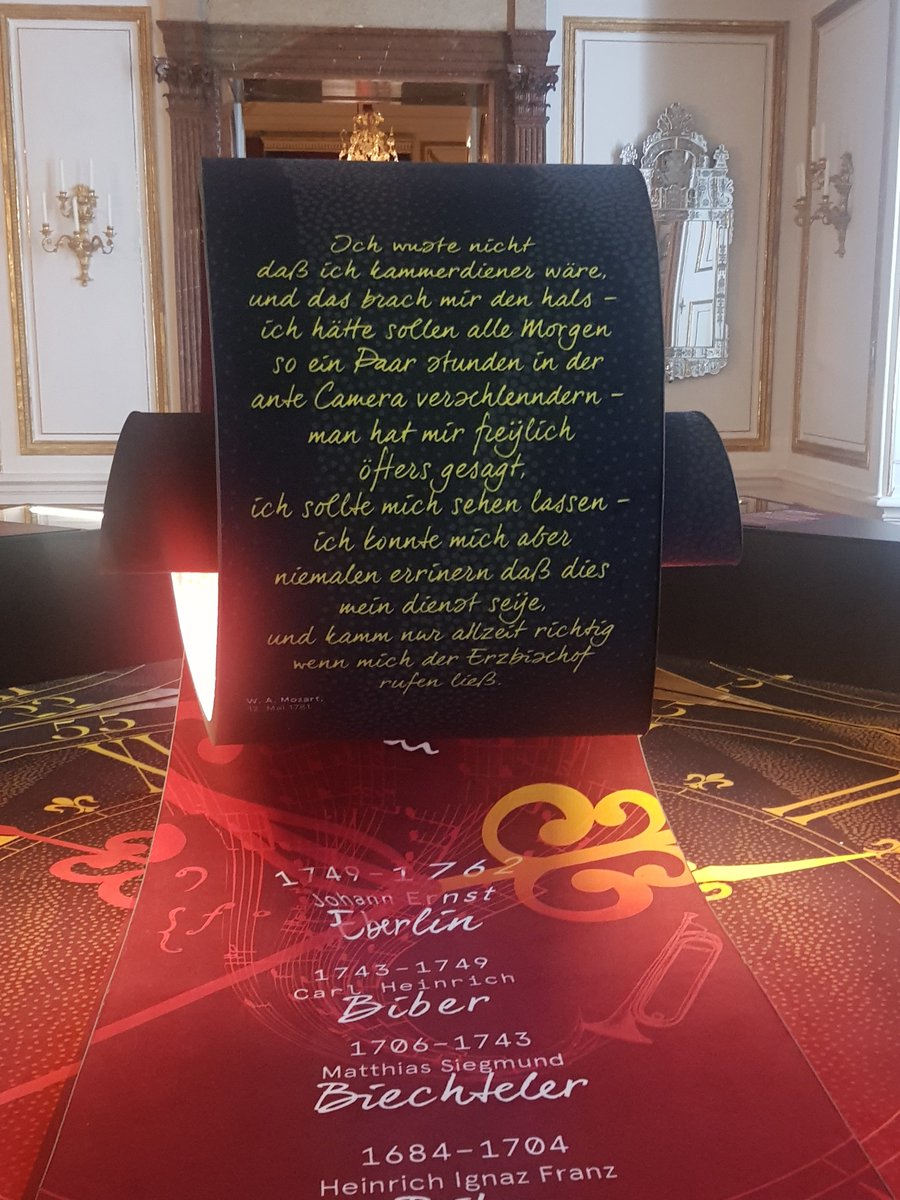 Ich wuste nicht
daß ich kammerdiener wäre,
und das brach mir den hals –
ich hätte sollen alle Morgen
so ein Paar stunden in der
ante Camera verschlenndern –
man hat mir freÿlich
öfters gesagt,
ich sollte mich sehen lassen –
ich konnte mich aber
niemalen errinern daß dies
mein dienst seÿe,
und kamm nur allzeit richtig
wenn mich der Erzbischof
rufen ließ.
W. A. Mozart,
12. Mai 1781
1749–1762
Johann Ernst
Eberlin
1743–1749
Carl Heinrich
Biber
1706–1743
Matthias Siegmund
Biechteler
1684–1704
Heinrich Ignaz Franz